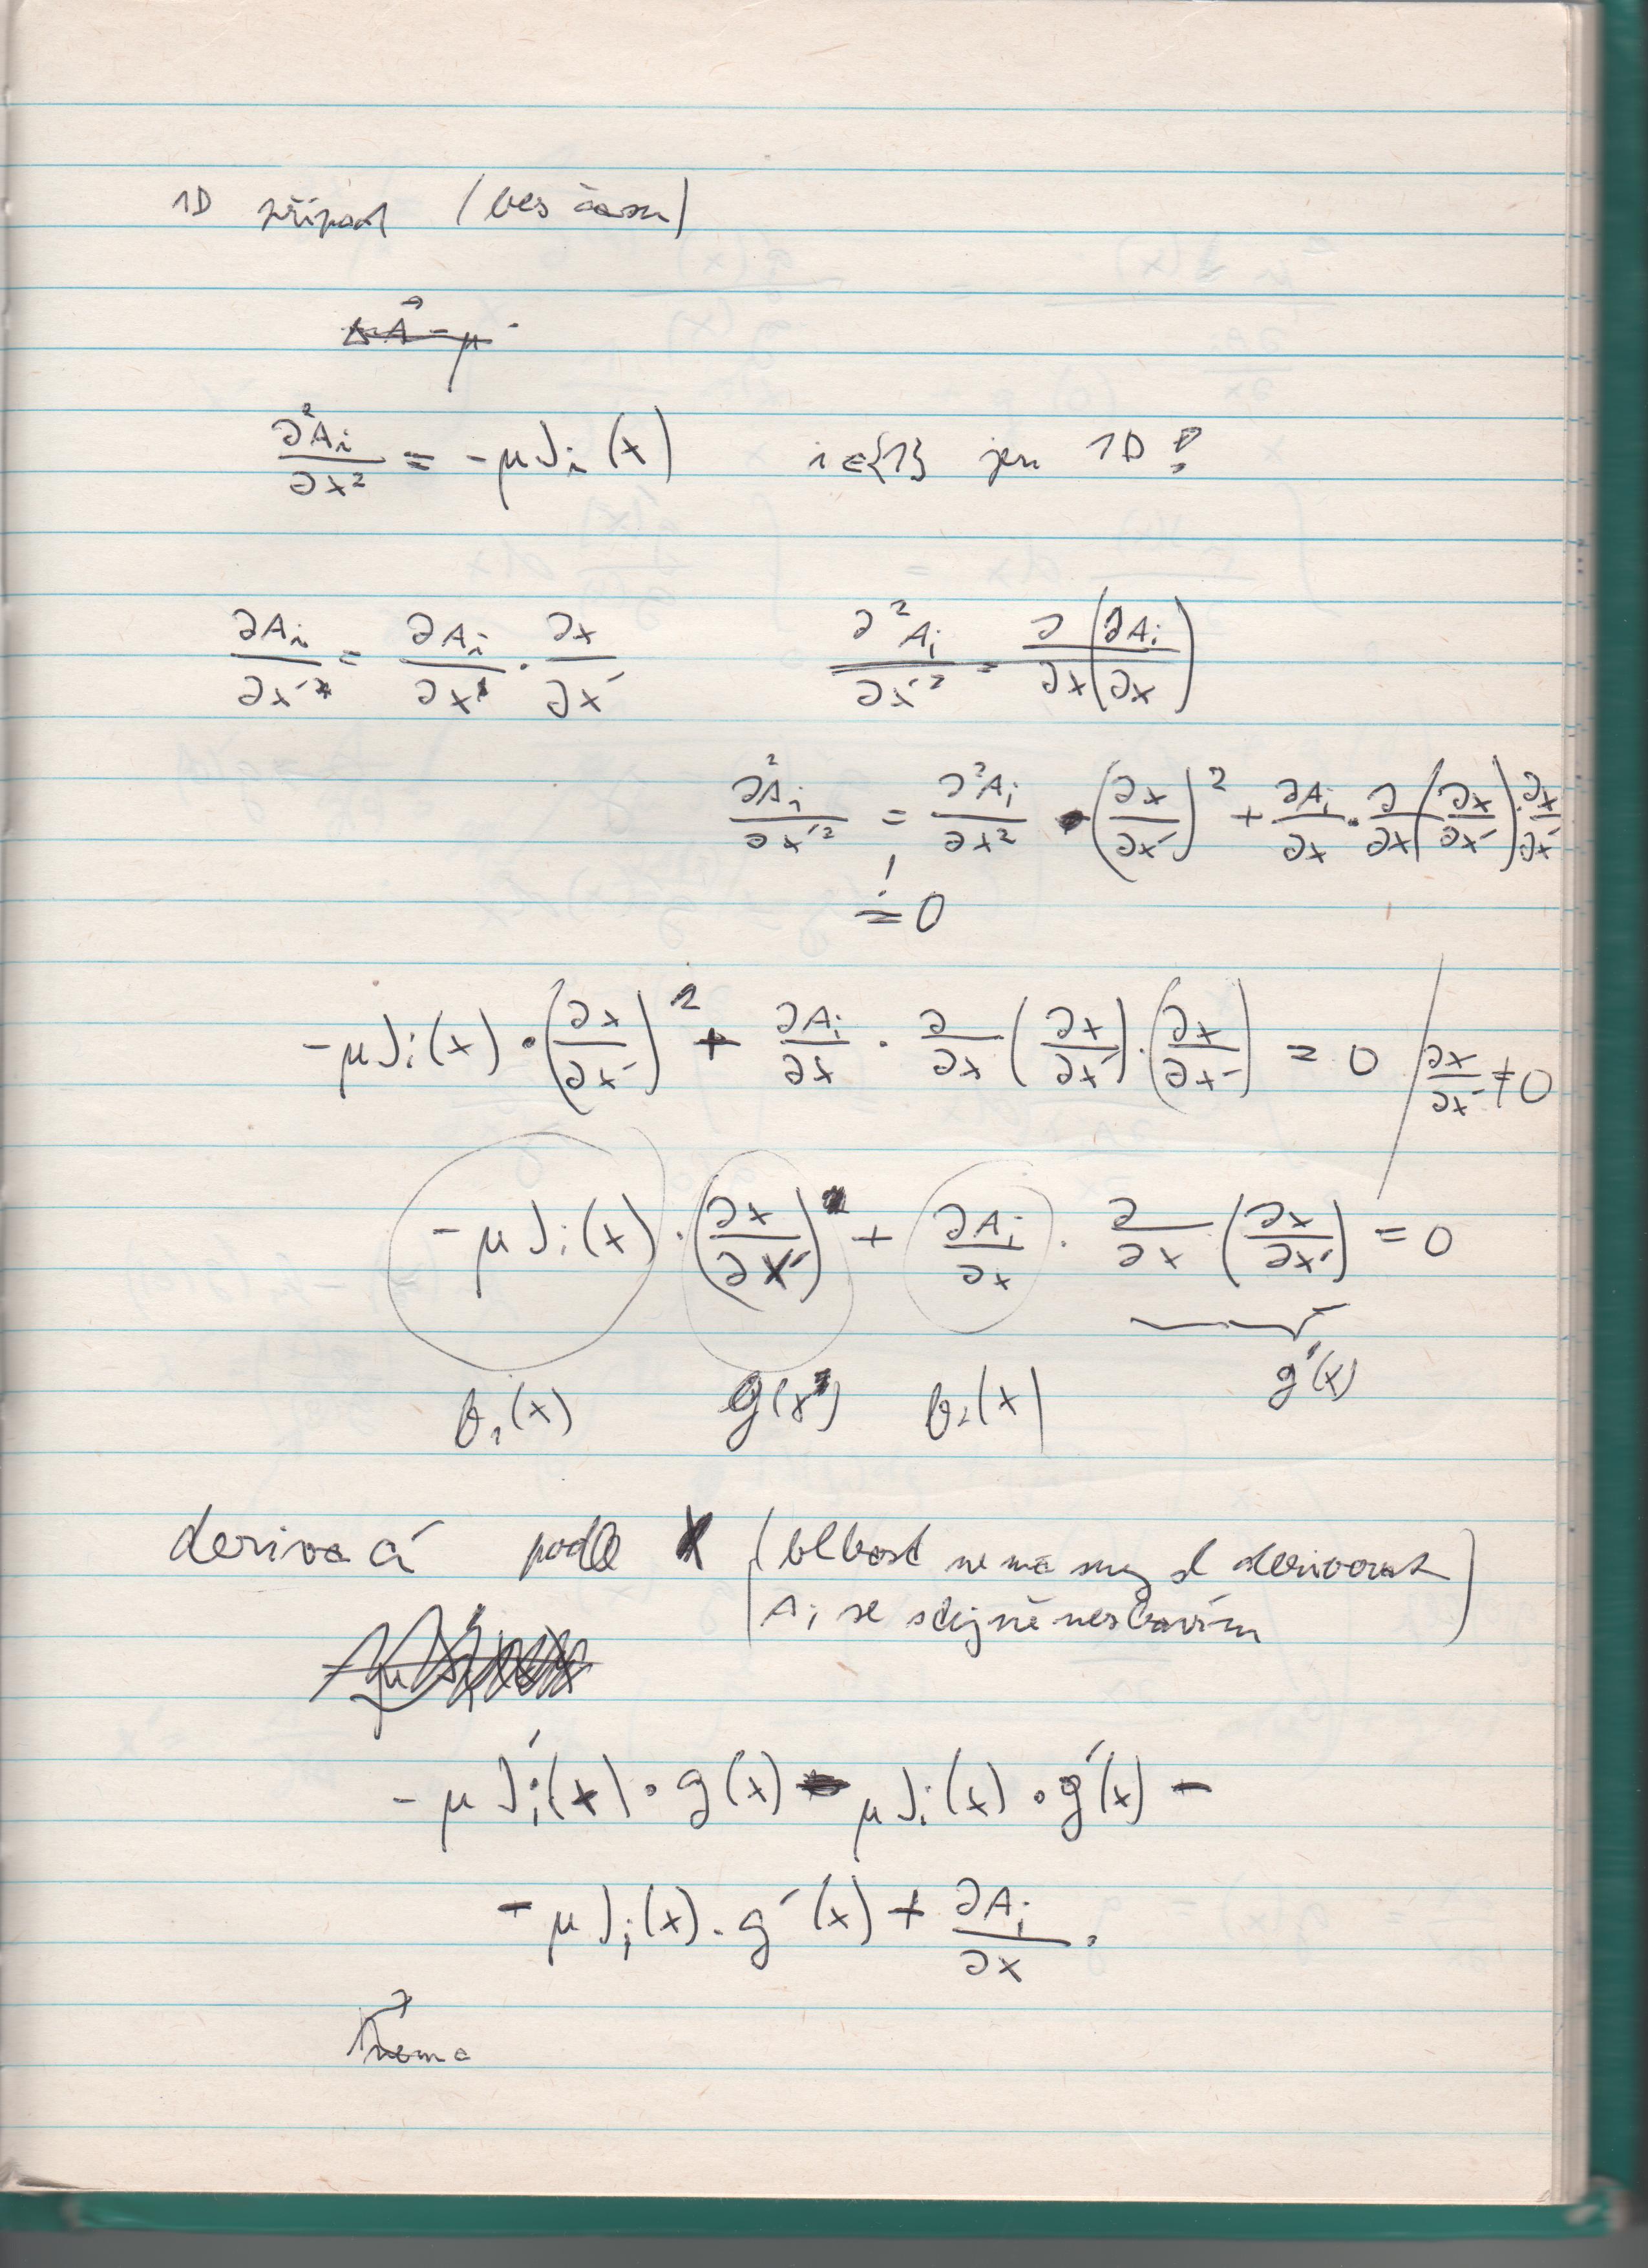 1D případ (bez času)
∂²Aᵢ/∂x² = -μJᵢ(x) i∈{1} jen 1D !
∂Aᵢ/∂x' = ∂Aᵢ/∂x · ∂x/∂x' ∂²Aᵢ/∂x'² = ∂/∂x (∂Aᵢ/∂x)
∂²Aᵢ/∂x'² = ∂²Aᵢ/∂x² · (∂x/∂x')² + ∂Aᵢ/∂x · ∂/∂x (∂x/∂x') · ∂x/∂x'
! = 0
-μJᵢ(x) · (∂x/∂x')² + ∂Aᵢ/∂x · ∂/∂x (∂x/∂x') · (∂x/∂x') = 0 / ∂x/∂x' ≠ 0
-μJᵢ(x) · (∂x/∂x') + ∂Aᵢ/∂x · ∂/∂x (∂x/∂x') = 0
f₁(x) g(x) f₂(x) g'(x)
derivací podle x (blbost nemá smysl derivovat
Aᵢ se stejně nezbavím)
-μJᵢ'(x) · g(x) - μJᵢ(x) · g'(x) -
-μJᵢ(x) · g'(x) + ∂Aᵢ/∂x ·
nema